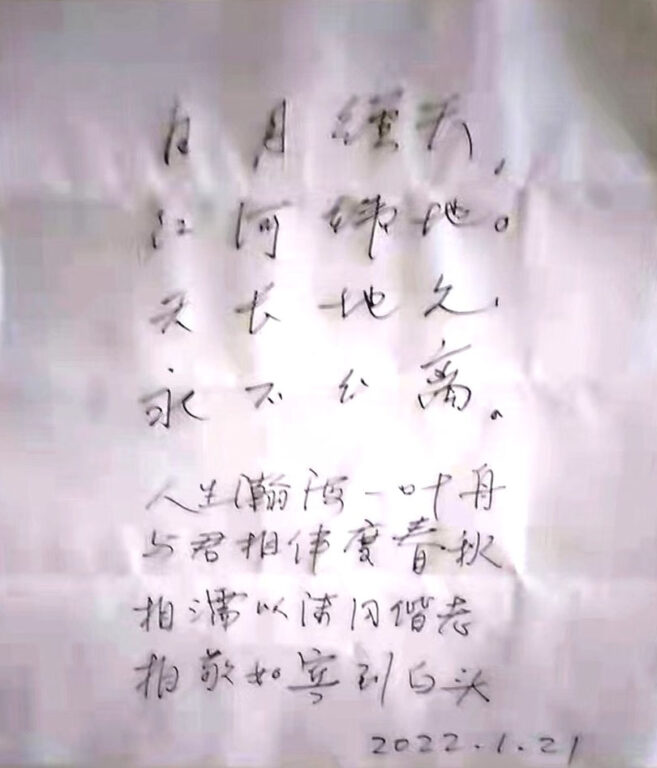 日月经天,
江河纬地。
天长地久,
永不分离。
人生瀚海一叶舟
与君相伴度春秋
相濡以沫同偕老
相敬如宾到白头
2022.1.21